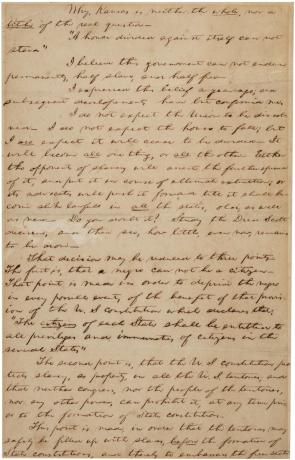 Why, Kansas is neither the whole, nor a
tithe of the real question—
"A house divided against itself can not
stand"
I believe this government can not endure
permanently, half slave, and half free—
I expressed this belief a year ago; and
subsequent developments have but confirmed me.
I do not expect the Union to be dissolv-
ed. I do not expect the house to fall; but
I do expect it will cease to be divided. It
will become all one thing, or all the other. Either
the opponents of slavery will arrest the further spread
of it, and put it in course of ultimate extinction; or
its advocates will push it forward till it shall be-
come alike lawful in all the states, old, as well
as new. Do you doubt it? Study the Dred Scott
decision, and then see, how little, even now, remains
to be done—
That decision may be reduced to three points.
The first is, that a negro can not be a citizen—
That point is made in order to deprive the negro
in every possible event, of the benefit of that provis-
ion of the U. S. Constitution which declares that,
"The citizens of each State shall be entitled to
all privileges and immunities of citizens in the
several States"
The second point is, that the U. S. constitution pro-
tects slavery, as property, in all the U. S. territories, and
that neither congress, nor the people of the territories,
nor any other power, can prohibit it, at any time prior
to the formation of State constitutions.
This point is made, in order that the territories may
safely be filled up with slaves, before the formation of
State constitutions, and thereby to embarrass the free state